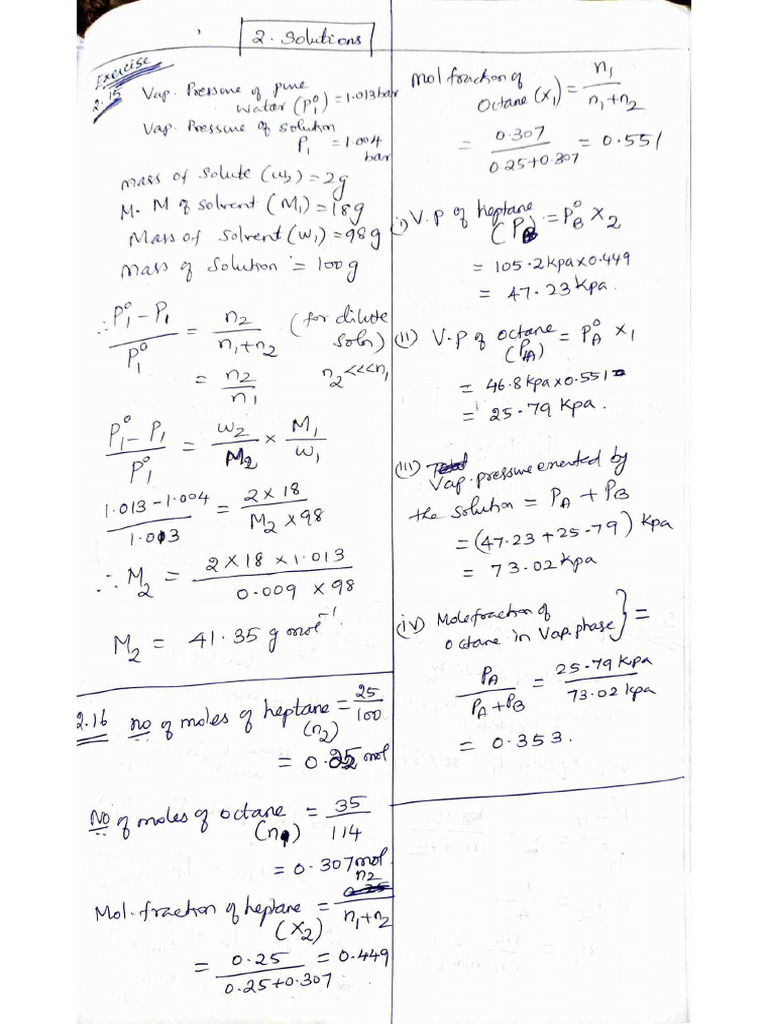 2. Solutions
Exercise
2.15 Vap. Pressure of pure
water (P₁⁰) = 1.013 bar
Vap. Pressure of solution
P₁ = 1.004
bar
mass of solute (w₂) = 2g
M. M of solvent (M₁) = 18g
Mass of solvent (w₁) = 98g
mass of solution = 100g
∴ (P₁⁰ - P₁)/P₁⁰ = n₂/(n₁+n₂) (for dilute soln)
= n₂/n₁ n₂<<<n₁
(P₁⁰ - P₁)/P₁⁰ = w₂/M₂ × M₁/w₁
(1.013 - 1.004)/1.013 = (2 × 18)/(M₂ × 98)
∴ M₂ = (2 × 18 × 1.013)/(0.009 × 98)
M₂ = 41.35 g mol⁻¹.
2.16 no of moles of heptane = 25/100
(n₂)
= 0.25 mol
No of moles of octane = 35/114
(n₁)
= 0.307 mol
Mol. fraction of heptane = n₂/(n₁+n₂)
(x₂)
= 0.25/(0.25+0.307) = 0.449
mol fraction of
octane (x₁) = n₁/(n₁+n₂)
= 0.307/(0.25+0.307) = 0.551
i) V.P of heptane = P_B⁰ x₂
(P_B)
= 105.2 kpa × 0.449
= 47.23 kpa.
(ii) V.P of octane = P_A⁰ x₁
(P_A)
= 46.8 kpa × 0.551
= 25.79 kpa.
(iii) Vap. pressure exerted by
the solution = P_A + P_B
= (47.23 + 25.79) kpa
= 73.02 kpa
(iv) Mole fraction of
octane in Vap. phase } =
P_A/(P_A+P_B) = 25.79 kpa/73.02 kpa
= 0.353.